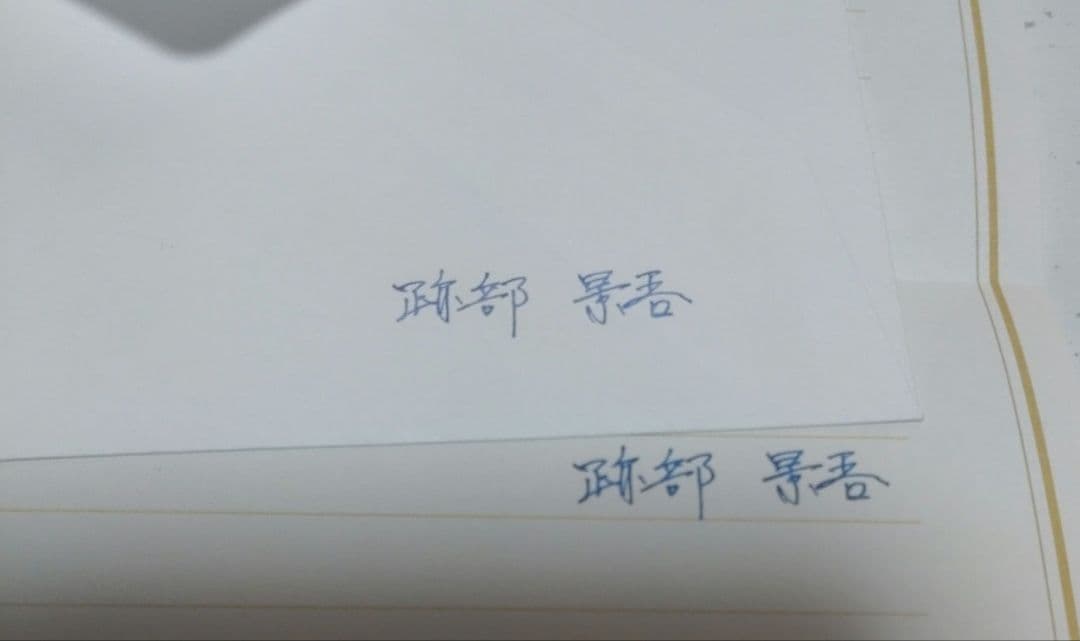 跡部 景吾
跡部 景吾